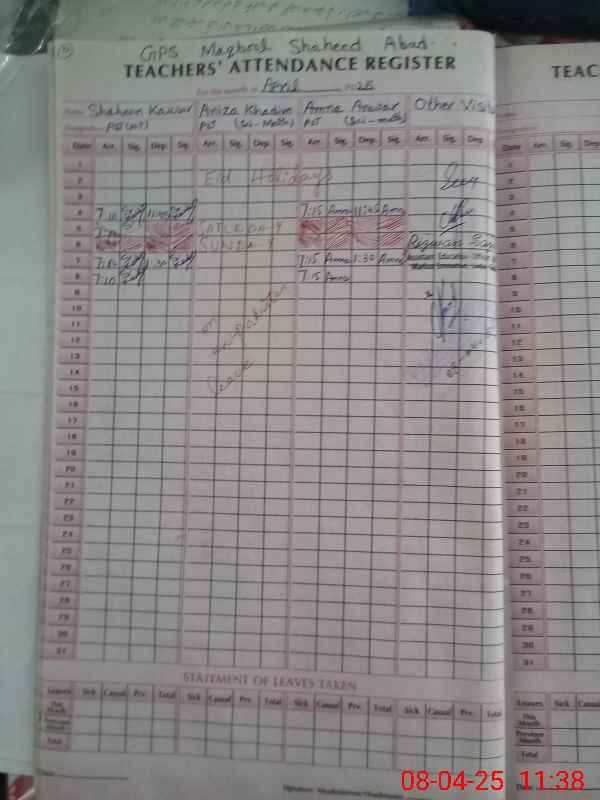 GPS Maqbool Shaheed Abad
TEACHERS' ATTENDANCE REGISTER
For the month of April 2025
Name Shaheen Kausar Aniza Khadim Amna Anwar Other Visi
Designation PST PST (Sci-Math) PST (Sci-math)
Date Arr. Sig. Dep. Sig. Arr. Sig. Dep. Sig. Arr. Sig. Dep. Sig. Arr. Sig. Dep.
1
2 Eid Holidays
3
4 7:10 11:45 7:15 Amna 11:45 Amna
5 SATURDAY
6 SUNDAY Rizwan
7 7:10 1:30 7:15 Amna 1:30 Amna Assistant Education Officer
8 7:10 7:15 Amna
9
10
11 on
12
13
14 leave
15
16
17
18
19
20
21
22
23
24
25
26
27
28
29
30
31
STATEMENT OF LEAVES TAKEN
Leaves Sick Casual Prv. Total Sick Casual Prv. Total Sick Casual Prv. Total Sick Casual Prv. Total
This Month
Previous Month
Total
TEAC
Date Arr. Sig. Dep.
1
2
3
4
5
6
7
8
9
10
11
12
13
14
15
16
17
18
19
20
21
22
23
24
25
26
27
28
29
30
31
Leaves Sick Casu
This Month
Previous Month
Total
08-04-25 11:38